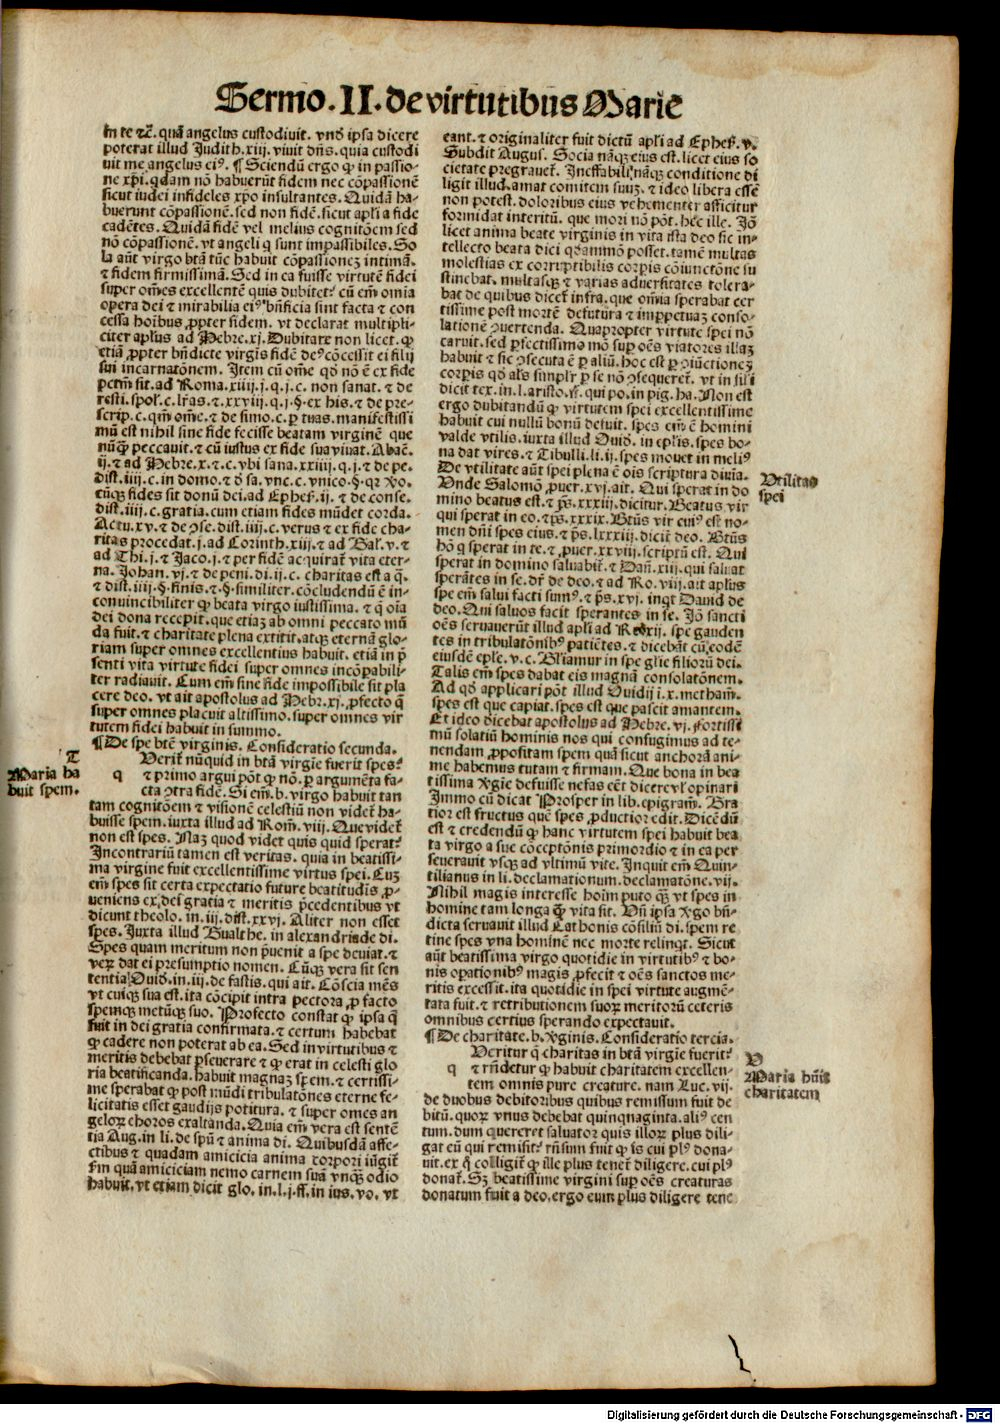 Sermo. II. de virtutibus Marie
in te ⁊c̃. quã angelus custodiuit. vnđ ipsa dicere
poterat illud Judith. xiij. viuit dñs. quia custodi
uit me angelus eiꝰ. ¶ Sciendũ ergo ꝙ in passio-
ne xp̃i. qdam nõ habuerũt fidem nec cõpassionẽ
sicut iudei infideles xp̃o insultantes. Quidã ha-
buerunt cõpassionẽ. sed non fidẽ. sicut apl̃i a fide
cadẽtes. Quidã fidẽ vel melius cognitõem sed
nõ cõpassionẽ. vt angeli q̃ sunt impassibiles. So
la aũt virgo btã tũc habuit cõpassionez intimã.
⁊ fidem firmissimã. Sed in ea fuisse virtutẽ fidei
super om̃es excellentẽ quis dubitet: cũ em̃ omia
opera dei ⁊ mirabilia eiꝰ bñficia sint facta ⁊ con
cessa hoĩbus ꝓpter fidem. vt declarat multipli-
citer apl̃us ad Hebre. xj. Dubitare non licet. ꝙ
etiã ꝓpter bñdicte virgis fidẽ deꝰ cõcessit ei filij
sui incarnatõnem. Item cũ om̃e qđ nõ ẽ ex fide
pctm̃ sit. ad Roma. xiiij. j. q. j. c. non sanat. ⁊ de
resti. spol̃. c. l̃ras. ⁊ xxviij. q. j. §. ex his. ⁊ de pre-
scrip. c. qm̃ om̃e. ⁊ de simo. c. ꝑ tuas. manifestissi
mũ est nihil sine fide fecisse beatam virginẽ que
nũꝗ̃ peccauit. ⁊ cũ iustus ex fide sua viuat. Abac̃.
ij. ⁊ ad Hebre. x. ⁊ c. vbi sana. xxiiij. q. j. ⁊ de pe.
dist. iiij. c. in domo. ⁊ đ sa. vnc. c. vnico. §. qꝫ vo.
cũqꝫ fides sit donũ dei. ad Ephes̃. ij. ⁊ de conse.
dist. iiij. c. gratia. cum etiam fides mũdet corda.
Actu. xv. ⁊ de ꝯse. dist. iiij. c. verus ⁊ ex fide cha-
ritas procedat. j. ad Corinth. xiij. ⁊ ad Gal̃. v. ⁊
ad Thi. j. ⁊ Jaco. j. ⁊ per fidẽ acquirat̃ vita eter-
na. Johan. vj. ⁊ de peni. di. ij. c. charitas est a q̃.
⁊ dist. iiij. §. finis. ⁊ §. similiter. cõcludendũ ẽ in-
conuincibiliter ꝙ beata virgo iustissima. ⁊ q̃ oĩa
dei dona recepit. que etiaz ab omni peccato mũ
da fuit. ⁊ charitate plena extitit. atqꝫ eternã glo-
riam super omnes excellentius habuit. etiã in p̃
senti vita virtute fidei super omnes incõpabili-
ter radiauit. Cum em̃ sine fide impossibile sit pla
cere deo. vt ait apostolus ad Hebr. xj. ꝓfecto q̃
super omnes placuit altissimo. super omnes vir
tutem fidei habuit in summo.
¶ De spe btẽ virginis. Consideratio secunda.
T
Maria ha
buit spem.
q Verit̃ nũquid in btã virgĩe fuerit spes:
⁊ primo argui põt ꝙ nõ. ꝑ argumẽta fa-
cta ꝯtra fidẽ. Si em̃. b. virgo habuit tan
tam cognitõem ⁊ visionẽ celestiũ non videt̃ ha-
buisse spem. iuxta illud ad Rom̃. viij. Que videt̃
non est spes. Naz quod videt quis quid sperat:
Incontrariũ tamen est veritas. quia in beatissi-
ma virgine fuit excellentissime virtus spei. Cuz
em̃ spes sit certa expectatio future beatitudĩs ꝓ-
ueniens ex dei gratia ⁊ meritis p̃cedentibus vt
dicunt theolo. in. iij. dist. xxvj. Aliter non esset
spes. Juxta illud Gualthe. in alexandriade di.
Spes quam meritum non p̃uenit a spe deuiat. ⁊
veꝝ dat ei presumptio nomen. Cũqꝫ vera sit sen
tentia Ouid. in. iij. de fastis. qui ait. Cõscia mẽs
vt cuiqꝫ sua est. ita cõcipit intra pectora ꝓ facto
spemqꝫ metũqꝫ suo. Profecto constat ꝙ ipsa q̃
fuit in dei gratia confirmata. ⁊ certum habebat
ꝙ cadere non poterat ab ea. Sed in virtutibus ⁊
meritis debebat ꝑseuerare ⁊ ꝙ erat in celesti glo
ria beatificanda. habuit magnaz spem. ⁊ certissi-
me sperabat ꝙ post mũdi tribulatões eterne fe-
licitatis esset gaudijs potitura. ⁊ super omes an
geloꝝ choros exaltanda. Quia em̃ vera est sentẽ
tia Aug. in li. de spũ ⁊ anima di. Quibusdã affe-
ctibus ⁊ quadam amicicia anima corpori iũgit̃
Em quã amiciciam nemo carnem suã vnqꝫ odio
habuit. vt etiam dicit glo. in. l. j. ff. in ius. vo. vt
eant. ⁊ originaliter fuit dictũ apl̃i ad Ephes̃. v.
Subdit Augus. Socia nãqꝫ eius est. licet eius so
cietate pregrauet̃. Ineffabili nãqꝫ conditione di
ligit illud. amat comitem suuz. ⁊ ideo libera essẽ
non potest. doloribus eius vehementer afficitur
formidat interitũ. que mori nõ põt. hec ille. Jõ
licet anima beate virginis in vita ista deo sic in-
tellecto beata dici qđammõ posset. tamẽ multas
molestias ex corruptibilis corꝑis cõiunctõne su
stinebat. multasqꝫ ⁊ varias aduersitates tolera-
bat de quibus dicet̃ infra. que om̃ia sperabat cer
tissime post mortẽ defutura ⁊ imꝑpetuaz conso-
lationẽ ꝯuertenda. Quapropter virtute spei nõ
caruit. sed ꝑfectissimo mõ suꝑ oẽs viatores illaz
habuit ⁊ sic ꝯsecuta ẽ ꝑ aliũ. hoc est ꝑ ꝯiũctionez
corꝑis qđ al̃s simplr̃ ꝑ se nõ ꝯsequeret̃. vt in sil̃i
dicit tex. in. l. aristo. ff. qui po. in pig. ha. Non est
ergo dubitandũ ꝙ virtutem spei excellentissime
habuit cui nullũ bonũ defuit. spes em̃ ẽ homini
valde vtilis. iuxta illud Ouid. in epl̃is. spes bo-
na dat vires. ⁊ Tibulli. li. ij. spes mouet in meliꝰ
De vtilitate aũt spei plena ẽ oĩs scriptura diuĩa.
Vnde Salomõ ꝓuer. xvj. ait. Qui sperat in do
mino beatus est. ⁊ p̃s. xxxiij. dicitur. Beatus vir
qui sperat in eo. ⁊ p̃s. xxxix. Btũs vir cuiꝰ est no-
men dñi spes eius. ⁊ p̃s. lxxxiij. dicit̃ deo. Btũs
hõ q̃ sperat in te. ⁊ ꝓuer. xxviij. scriptũ est. Qui
sperat in domino saluabit̃. ⁊ Dañ. xiij. qui saluat
sperãtes in se. dr̃ de deo. ⁊ ad Ro. viij. ait apl̃us
spe em̃ salui facti sumꝰ. ⁊ p̃s. xvj. inqt Dauid de
deo. Qui saluos facit sperantes in se. Jõ sancti
oẽs seruauerũt illud apl̃i ad Ro. xij. spe gauden
tes in tribulatõnibꝰ patiẽtes. ⁊ dicebãt cũ eodẽ
eiusdẽ epl̃e. v. c. Gl̃iamur in spe gl̃ie filiorũ dei.
Talis em̃ spes dabat eis magnã consolatõnem.
Ad qđ applicari põt illud Ouidij i. x. metham̃.
spes est que capiat. spes est que pascit amantem.
Et ideo dicebat apostolus ad Hebre. vj. fortissi
mũ solatiũ hominis nos qui confugimus ad te-
nendam ꝓpositam spem quã sicut anchorã ani-
me habemus tutam ⁊ firmam. Que bona in bea
tissima ꝟgĩe defuisse nefas eẽt dicere vel opinari
Immo cũ dicat Prosper in lib. epigram̃. Gra
tior est fructus quẽ spes ꝓductior edit. Dicẽdũ
est ⁊ credendũ ꝙ hanc virtutem spei habuit bea
ta virgo a sue cõceptõnis primordio ⁊ in ea per
seuerauit vsqꝫ ad vltimũ vite. Inquit em̃ Quin-
tilianus in li. declamationum. declamatõne. vij.
Nihil magis interesse hoĩm puto qꝫ vt spes in
homine tam longa ꝗ̃ vita sit. Vñ ipsa ꝟgo bñ-
dicta seruauit illud Cathonis cõsiliũ di. spem re
tine spes vna hominẽ nec morte relinqt. Sicut
aũt beatissima virgo quotidie in virtutibꝰ ⁊ bo-
nis opationibꝰ magis ꝓfecit ⁊ oẽs sanctos me-
ritis excessit. ita quotidie in spei virtute augmẽ-
tata fuit. ⁊ retributionem suoꝝ meritorũ ceteris
omnibus certius sperando expectauit.
¶ De charitate. b. ꝟginis. Consideratio tercia.
q Veritur q̃ charitas in btã virgĩe fuerit:
⁊ rñdetur ꝙ habuit charitatem excellen-
tem omnis pure creature. nam Luc. vij.
de duobus debitoribus quibus remissum fuit de
bitũ. quoꝝ vnus debebat quinquaginta. aliꝰ cen
tum. dum quereret saluator quis illoꝝ plus dili-
gat eũ qui remisit: rñsum fuit ꝙ is cui plꝰ dona-
uit. ex q̃ colligit̃ ꝙ ille plus tenet̃ diligere. cui plꝰ
donat̃. Sꝫ beatissime virgini suꝑ oẽs creaturas
donatum fuit a deo. ergo eum plus diligere tene
Vtilitas
spei
V
Maria hũit
charitatem
Digitalisierung gefördert durch die Deutsche Forschungsgemeinschaft - DFG